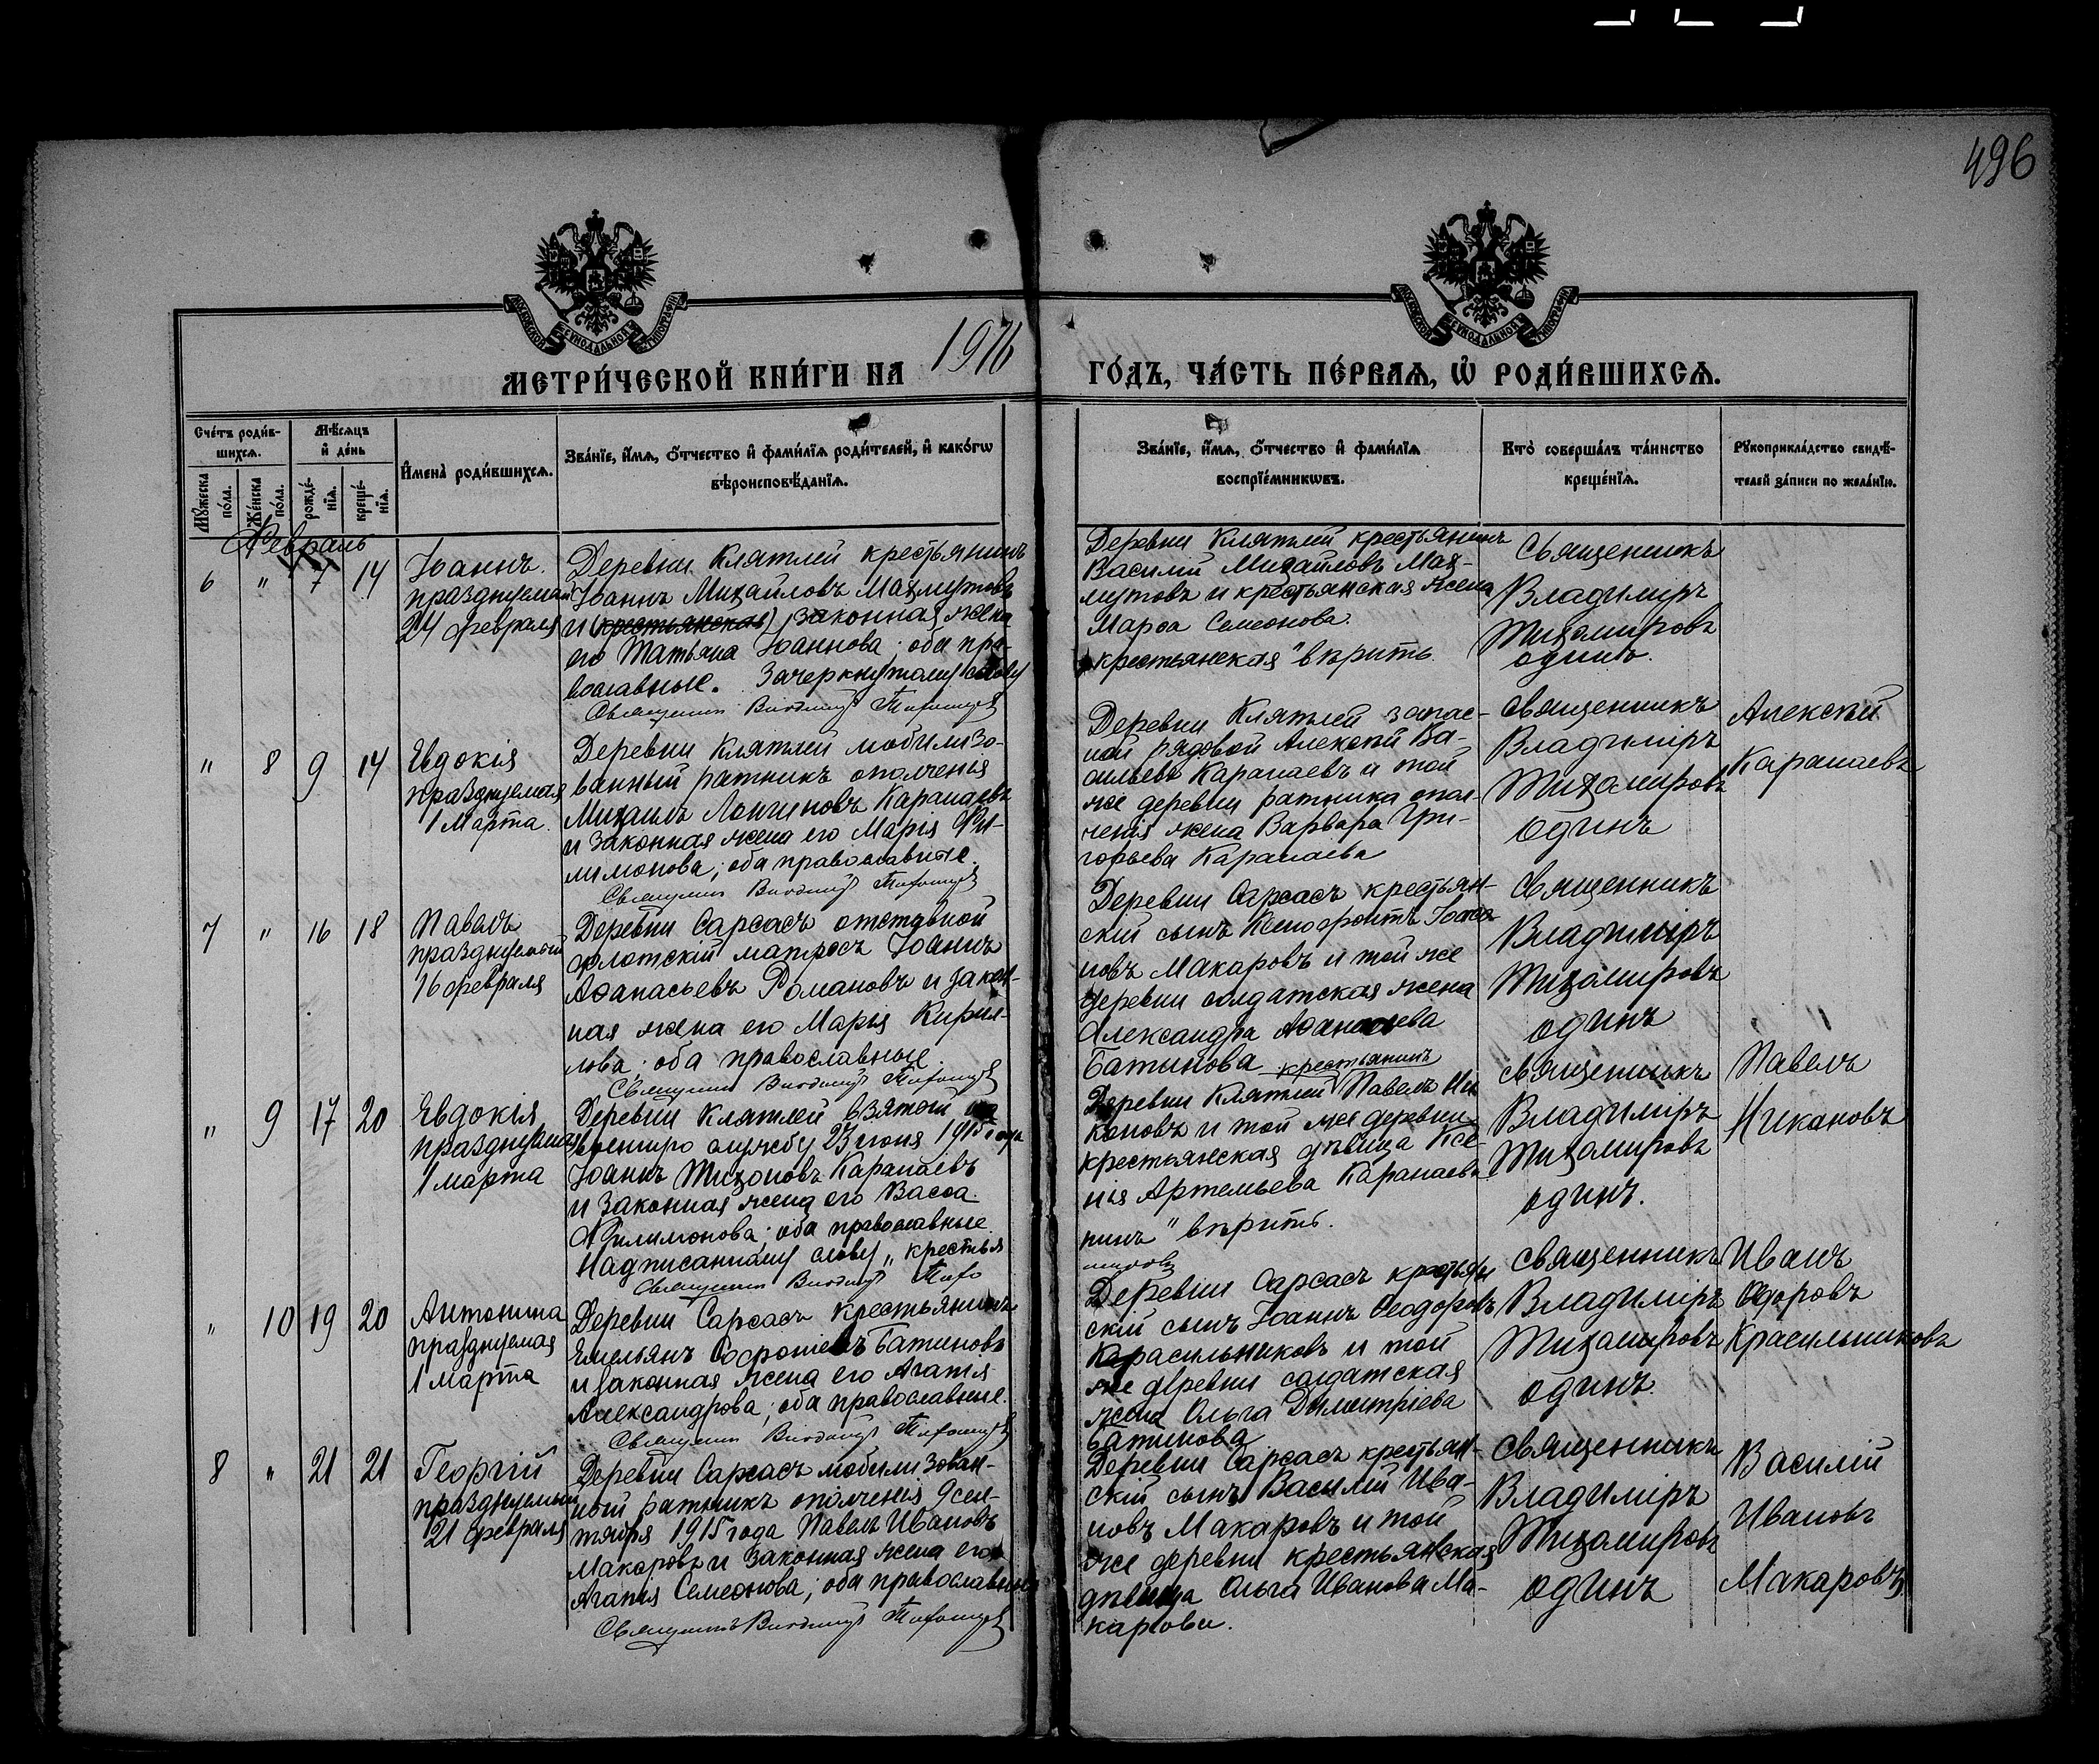 496
МОСКОВСКОЙ СѴНОДАЛЬНОЙ ТИПОГРАФІИ
МОСКОВСКОЙ СѴНОДАЛЬНОЙ ТИПОГРАФІИ
МЕТРИ́ЧЕСКОЙ КНИ́ГИ НА 1916 ГО́ДЪ, ЧА́СТЬ ПЕ́РВАѦ, Ѡ҆ РОДИ́ВШИХСѦ.
Сче́тъ роди́в-
шихсѧ.
Мꙋ́жеска
по́ла.
Же́нска
по́ла.
Мѣ́сѧцъ
и҆ де́нь
рожде́-
нїѧ.
креще́-
нїѧ.
И҆мена̀ роди́вшихсѧ.
Зва́нїе, и҆́мѧ, ѻ҆́тчество и҆ фами́лїѧ роди́телей, и҆ како́гѡ
вѣроисповѣ́данїѧ.
Зва́нїе, и҆́мѧ, ѻ҆́тчество и҆ фами́лїѧ
воспрїе́мникѡвъ.
Кто̀ соверша́лъ та́инство
креще́нїѧ.
Рꙋкоприкла́дство свидѣ́-
телей за́писи по жела́нїю.
Февраль
6 " 7 14
Іоаннъ.
празднуемый
24 февраля
Деревни Клятлей крестьянинъ
Іоаннъ Михайловъ Махмутовъ
и (крестьянская) законная жена
его Татьяна Іоаннова; оба пра-
вославные. Зачеркнутому слову
Священникъ Владиміръ Тихомировъ
Деревни Клятлей крестьянинъ
Василій Михайловъ Мах-
мутовъ и крестьянская жена
Марѳа Семеонова.
"крестьянская" вѣрить.
Священникъ
Владиміръ
Тихомировъ
одинъ.
" 8 9 14
Евдокія
празднуемая
1 Марта.
Деревни Клятлей мобилизо-
ванный ратникъ ополченья
Михаилъ Лонгиновъ Карапаевъ
и законная жена его Марія Фи-
лимонова; оба православные.
Священникъ Владиміръ Тихомировъ
Деревни Клятлей запас-
ной рядовой Алексѣй Ва-
сильевъ Карапаевъ и той
же деревни ратника опол-
ченія жена Варвара Гри-
горьева Карапаева
священникъ
Владиміръ
Тихомировъ
одинъ
Алексѣй
Карапаевъ
7 " 16 18
Павелъ
празднуемый
16 февраля
Деревни Сарсасъ отставной
флотскій матросъ Іоаннъ
Аѳанасьевъ Романовъ и закон-
ная жена его Марія Кирил-
лова; оба православные.
Священникъ Владиміръ Тихомировъ
Деревни Сарсасъ крестьян-
скій сынъ Ксенофонтъ Іоан-
новъ Макаровъ и той же
деревни солдатская жена
Александра Аѳанасьева
Батинова
священникъ
Владиміръ
Тихомировъ
одинъ
" 9 17 20
Евдокія
празднуемая
1 марта
Деревни Клятлей взятой на
военную службу 23 іюня 1915 года
Іоаннъ Тихоновъ Карапаевъ
и законная жена его Васса
Филимонова; оба православные.
Надписанному слову „крестья
Священникъ Владиміръ Тихо
крестьянинъ
Деревни Клятлей Павелъ Ни
коновъ и той же деревни
крестьянская дѣвица Ксе-
нія Артемьева Карапаева
нинъ" вѣрить.
мировъ
священникъ
Владиміръ
Тихомировъ
одинъ.
Павелъ
Никановъ
" 10 19 20
Антонина
празднуемая
1 марта
Деревни Сарсасъ крестьянинъ
Емельянъ Софроніевъ Батиновъ
и законная жена его Агапія
Александрова; оба православные.
Священникъ Владиміръ Тихомировъ
Деревни Сарсасъ крестьян
скій сынъ Іоаннъ Ѳеодоровъ
Красильниковъ и той
же деревни солдатская
жена Ольга Димитріева
Батинова
священникъ
Владиміръ
Тихомировъ
одинъ.
Иванъ
Ѳедоровъ
Красильниковъ
8 " 21 21
Георгій
празднуемый
21 февраля
Деревни Сарсасъ мобилизован-
ной ратникъ ополченія 9 сен-
тября 1915 года Павелъ Ивановъ
Макаровъ и законная жена его
Агапія Семеонова; оба православные
Священникъ Владиміръ Тихомировъ
Деревни Сарсасъ крестьян-
скій сынъ Василій Ива-
новъ Макаровъ и той
же деревни крестьянская
дѣвица Ольга Иванова Ма-
карова.
священникъ
Владиміръ
Тихомировъ
одинъ
Василій
Ивановъ
Макаровъ